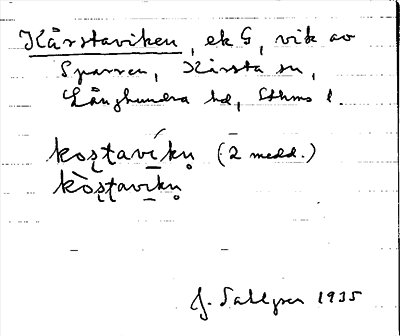 Kårstaviken, ek G, vik av
Sparren, Kårsta sn,
Långhundra hd, Sthms l.
kosʈavíkn̥ (2 medd.)
kòsʈavikn̥
J. Sahlgren 1935